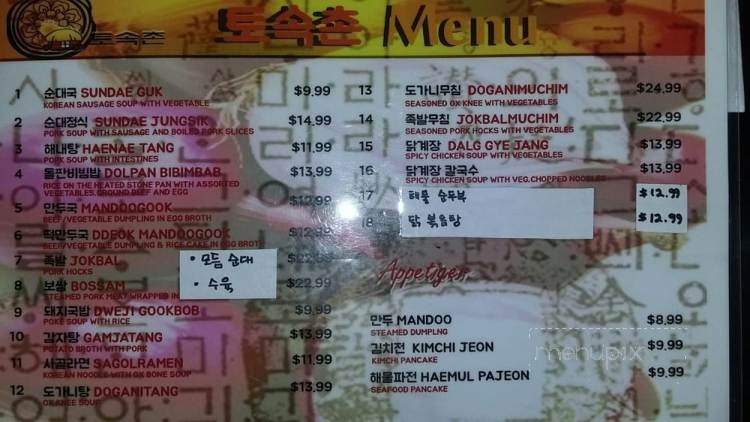 토속촌
토속촌 Menu
1 순대국 SUNDAE GUK $9.99
KOREAN SAUSAGE SOUP WITH VEGETABLE
2 순대정식 SUNDAE JUNGSIK $14.99
PORK SOUP WITH SAUSAGE AND BOILED PORK SLICES
3 해내탕 HAENAE TANG $11.99
PORK SOUP WITH INTESTINES
4 돌판비빔밥 DOLPAN BIBIMBAB $13.99
RICE ON THE HEATED STONE PAN WITH ASSORTED
VEGETABLES. GROUND BEEF AND EGG
5 만두국 MANDOOGOOK
BEEF/VEGETABLE DUMPLING IN EGG BROTH
6 떡만두국 DDEOK MANDOOGOOK $12.99
BEEF/VEGETABLE DUMPLING & RICE CAKE IN EGG BROTH
7 족발 JOKBAL
PORK HOCKS
• 모듬 순대
• 수육
8 보쌈 BOSSAM $22.99
STEAMED PORK MEAT WRAPPED IN
9 돼지국밥 DWEJI GOOKBOB $9.99
POKE SOUP WITH RICE
10 감자탕 GAMJATANG $13.99
POTATO BROTH WITH PORK
11 사골라면 SAGOLRAMEN $11.99
KOREAN NOODLE WITH OX BONE SOUP
12 도가니탕 DOGANITANG $13.99
OX KNEE SOUP
13 도가니무침 DOGANIMUCHIM $24.99
SEASONED OX KNEE WITH VEGETABLES
14 족발무침 JOKBALMUCHIM $22.99
SEASONED PORK HOCKS WITH VEGETABLES
15 닭계장 DALG GYE JANG $13.99
SPICY CHICKEN SOUP WITH VEGETABLES
16 닭계장 칼국수 $13.99
SPICY CHICKEN SOUP WITH VEG.CHOPPED NOODLES
17 해물 순두부 $12.99
18 닭 볶음탕 $12.99
Appetizer
만두 MANDOO $8.99
STEAMED DUMPLNG
김치전 KIMCHI JEON $9.99
KIMCHI PANCAKE
해물파전 HAEMUL PAJEON $9.99
SEAFOOD PANCAKE
menupix